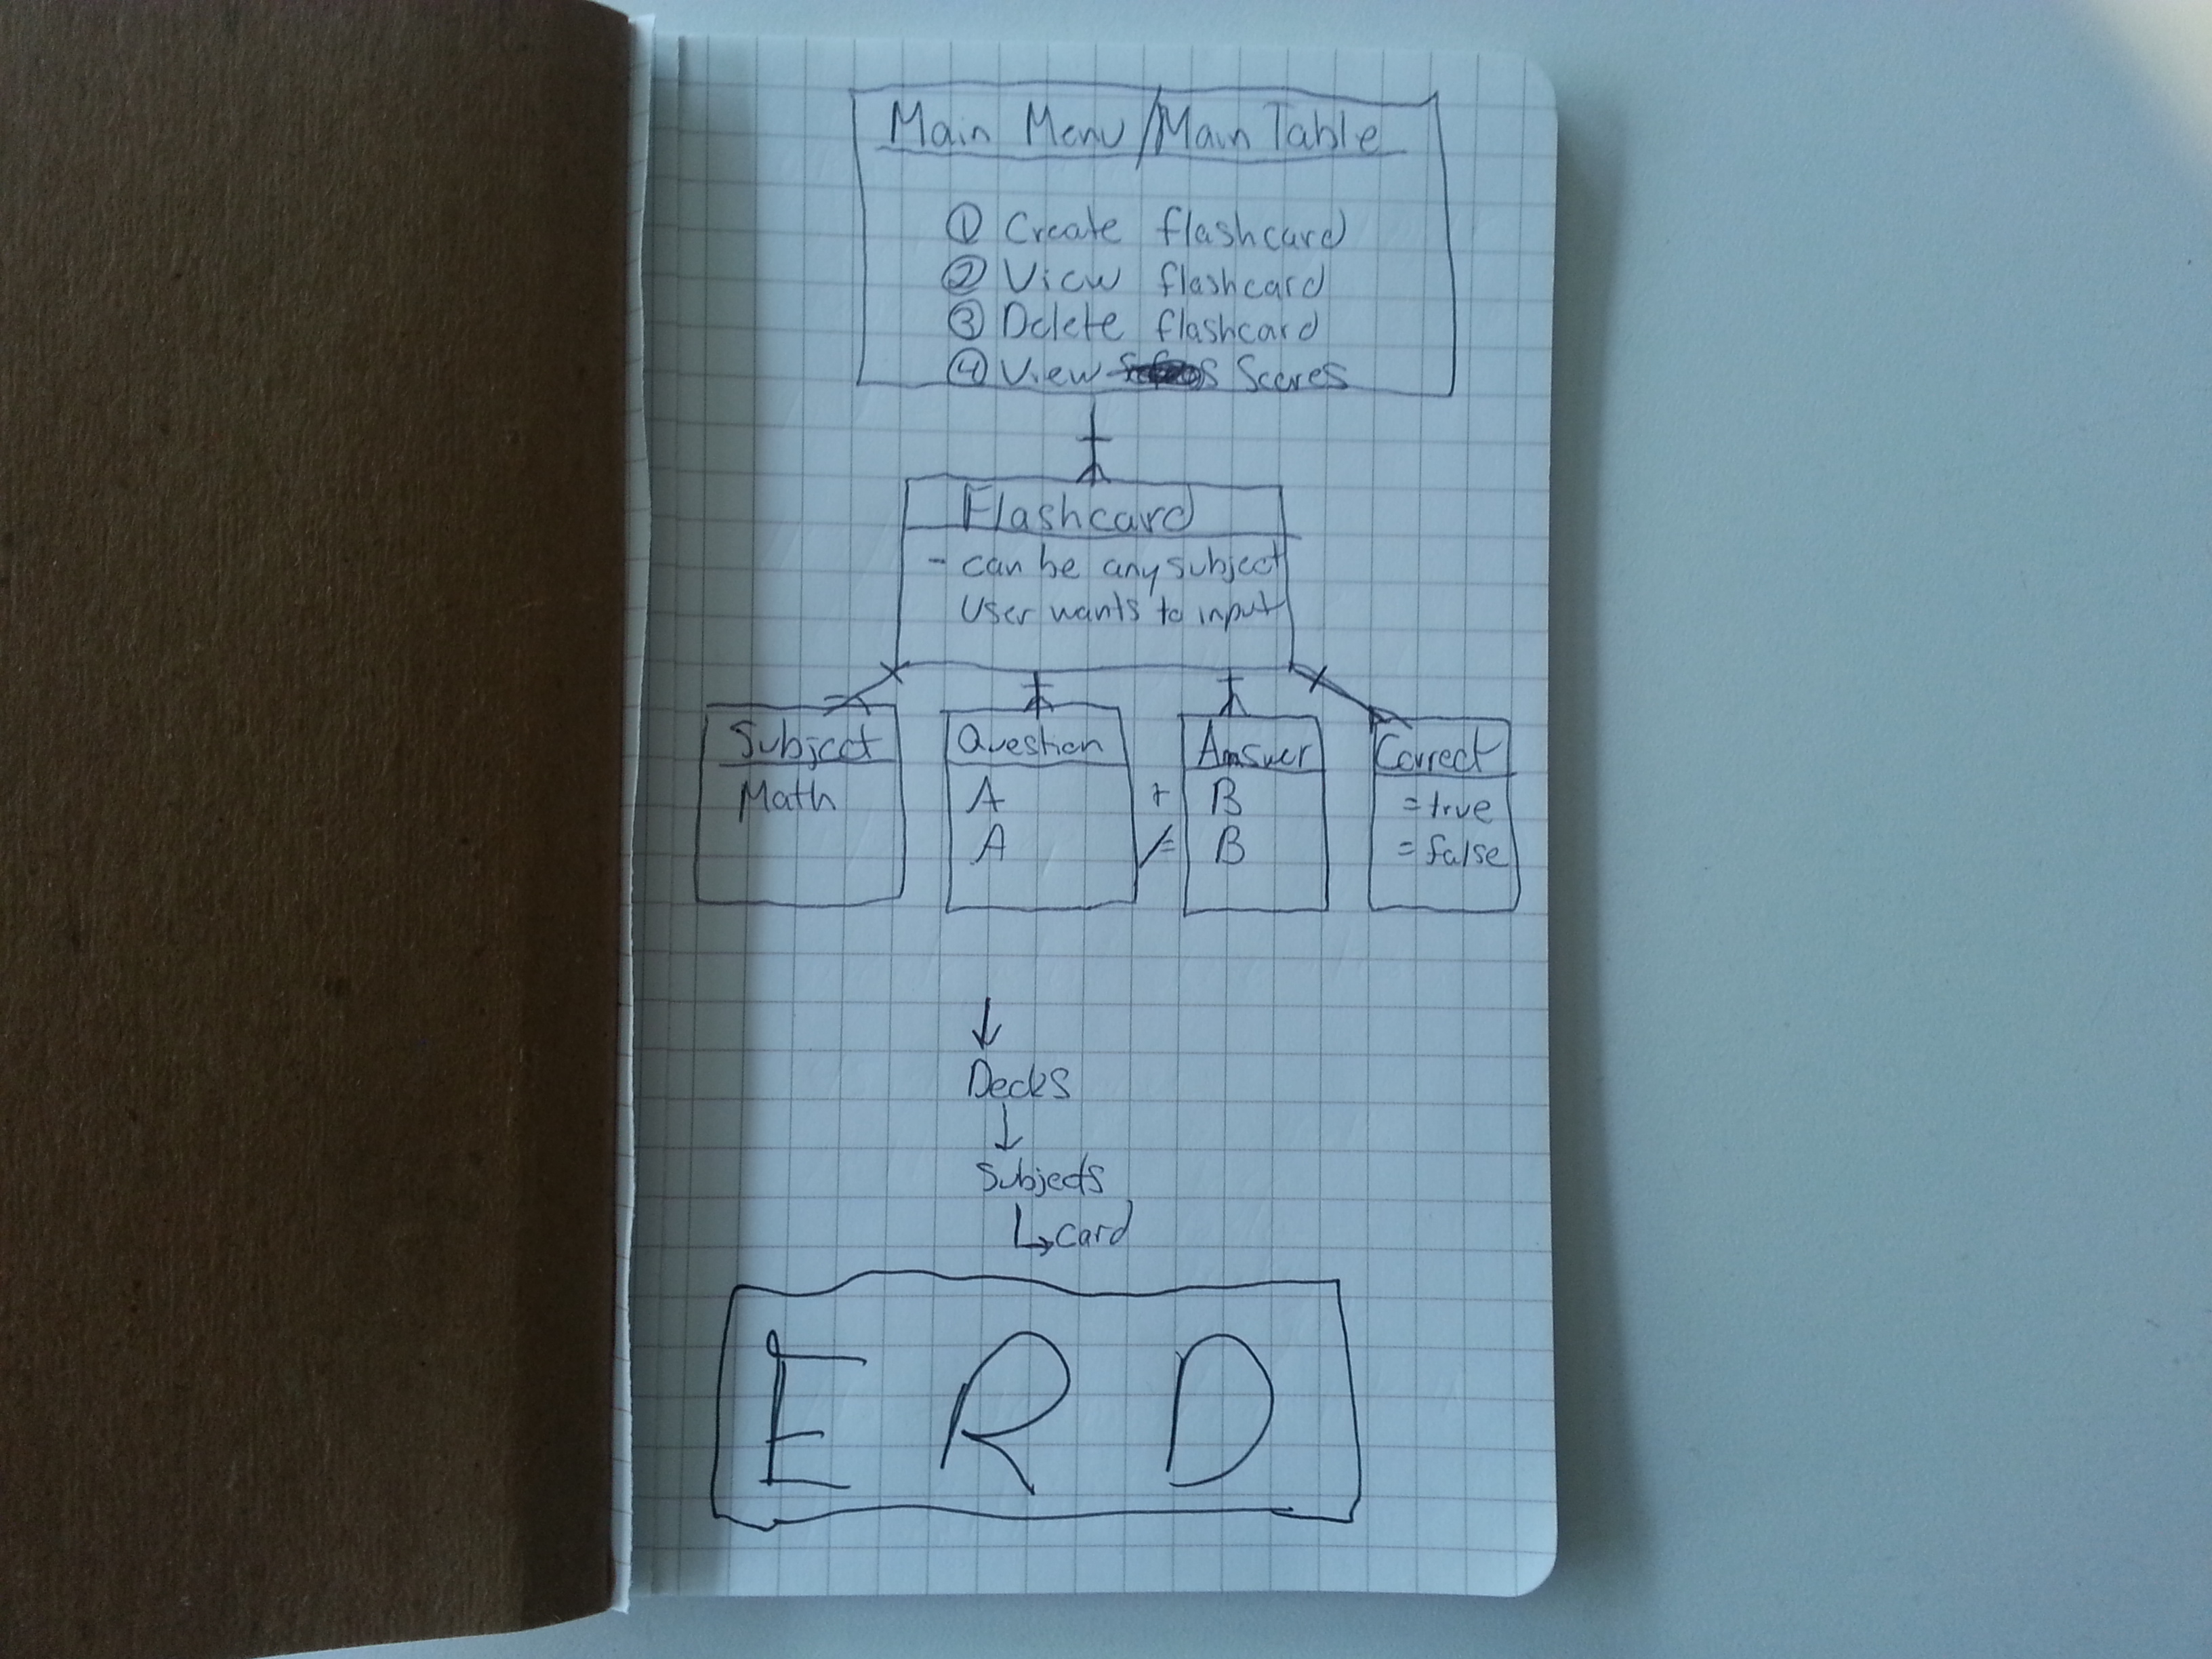 Main Menu/Main Table
① Create flashcard
② View flashcard
③ Delete flashcard
④ View Scores
Flashcard
- can be any subject
User wants to input
Subject
Math
Question
A
A
+
≠
Answer
B
B
Correct
= true
= false
↓
Decks
↓
Subjects
↳ card
ERD